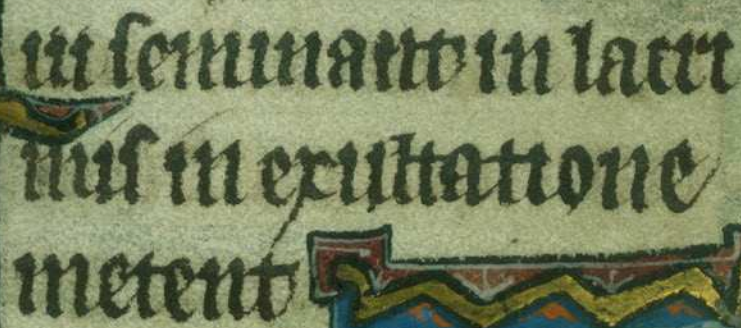 ui seminant in lacri
mis in exultatione
metent